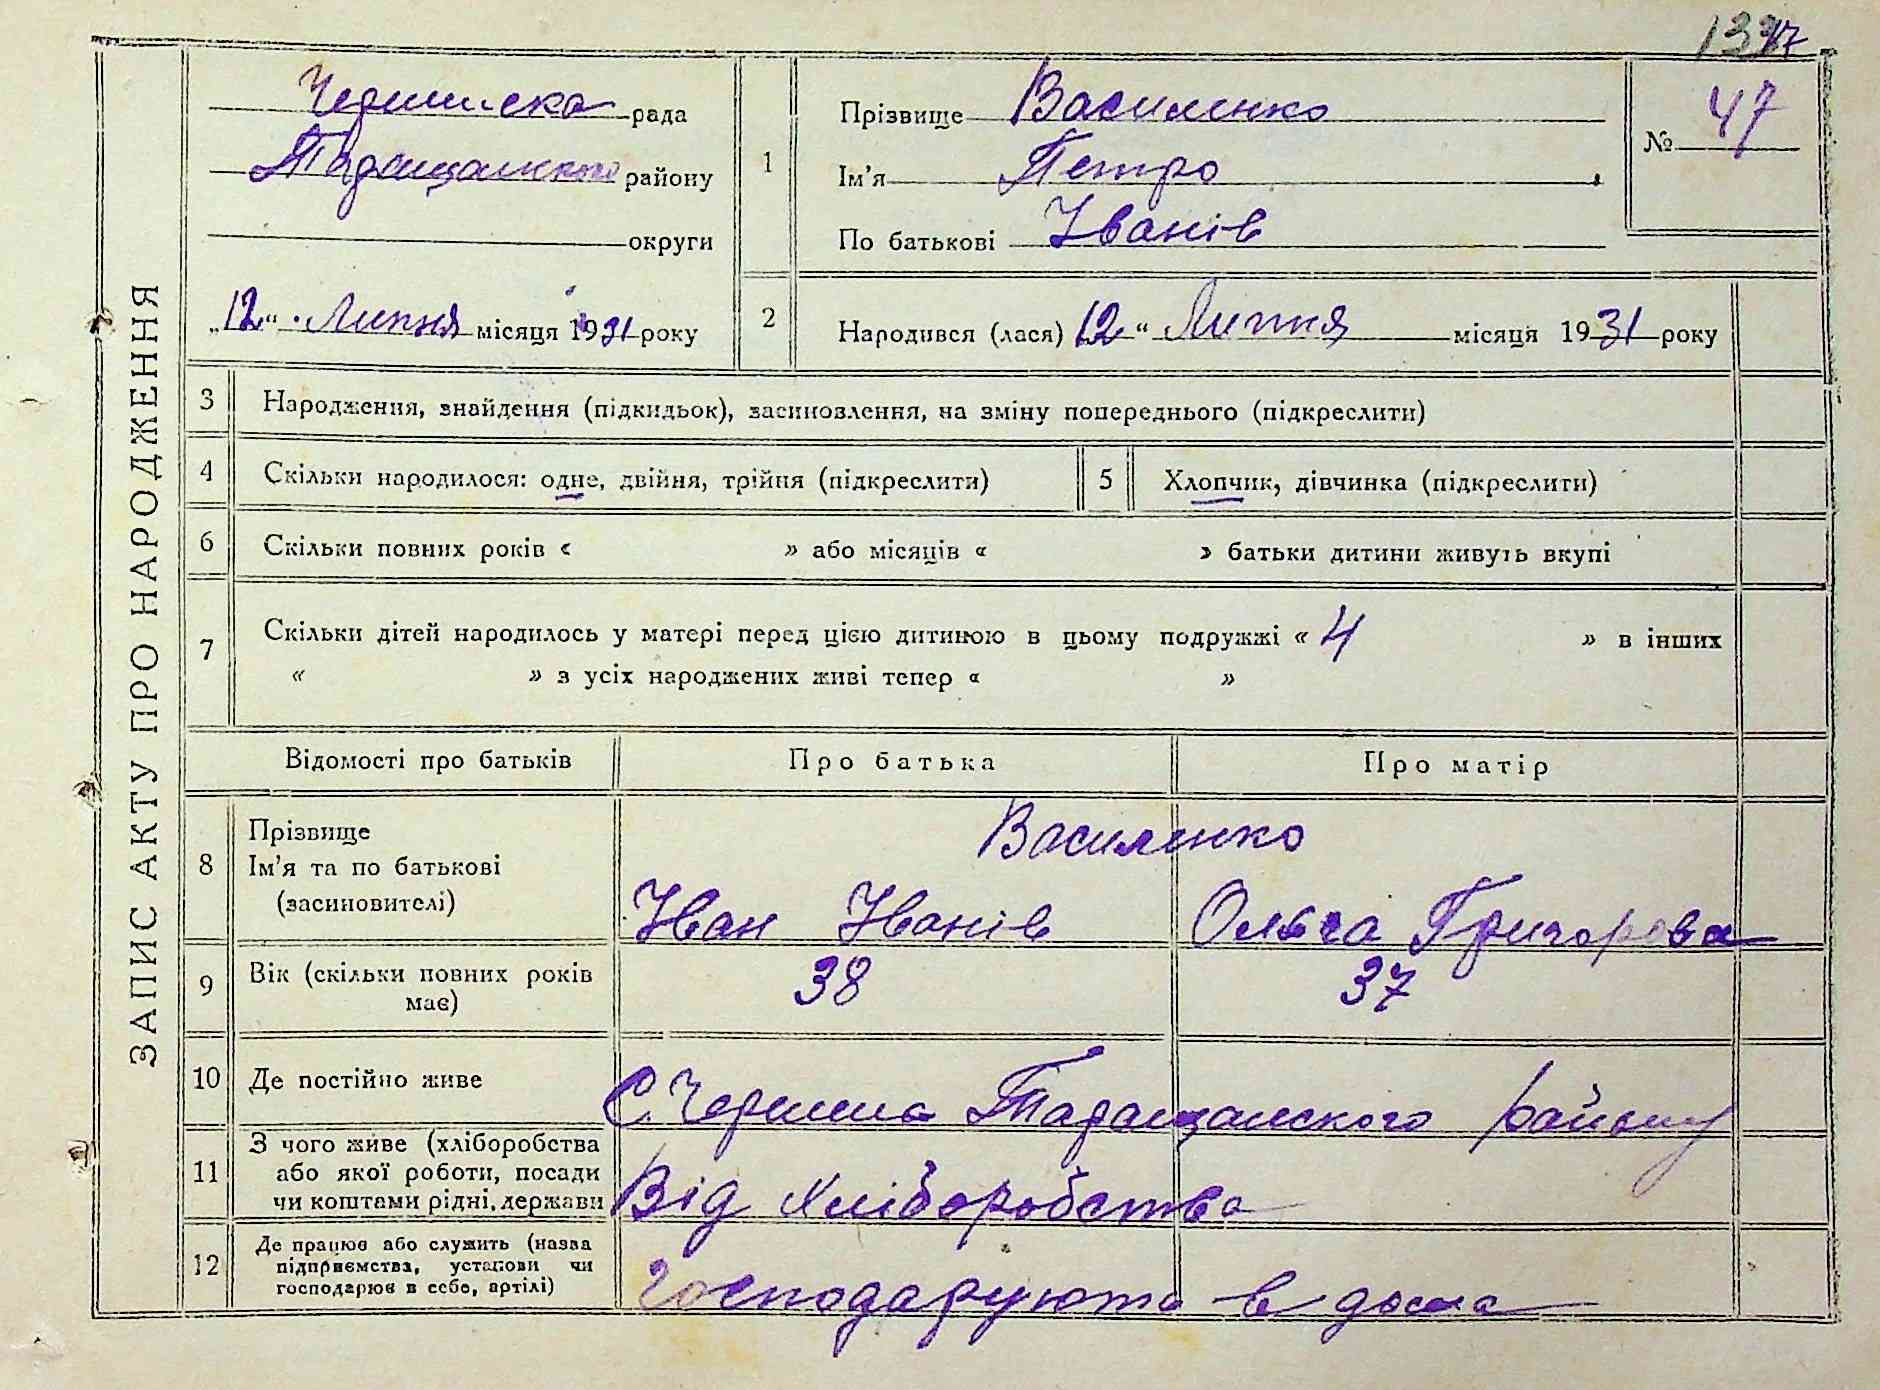 47
ЗАПИС АКТУ ПРО НАРОДЖЕННЯ
Черминска рада
Таращанского району
округи
„12“ Липня місяця 1931 року
1
Прізвище Василенко
Ім'я Петро
По батькові Іванів
№ 47
2
Народився (лася) 12 “ Липня місяця 1931 року
3 Народження, знайдення (підкидьок), засиновлення, на зміну попереднього (підкреслити)
4 Скільки народилося: одне, двійня, трійня (підкреслити)
5 Хлопчик, дівчинка (підкреслити)
6 Скільки повних років « » або місяців « » батьки дитини живуть вкупі
7 Скільки дітей народилось у матері перед цією дитиною в цьому подружжі « 4 » в інших
« » з усіх народжених живі тепер « »
Відомості про батьків Про батька Про матір
8 Прізвище
Ім'я та по батькові
(засиновителі)
Василенко
Іван Іванів Ольга Григорова
9 Вік (скільки повних років
має)
38 37
10 Де постійно живе
С. Чермина Таращанского району
11 З чого живе (хліборобства
або якої роботи, посади
чи коштами рідні, держави
Від хліборобства
12 Де працює або служить (назва
підприємства, установи чи
господарює в себе, артілі)
Господарують в дома